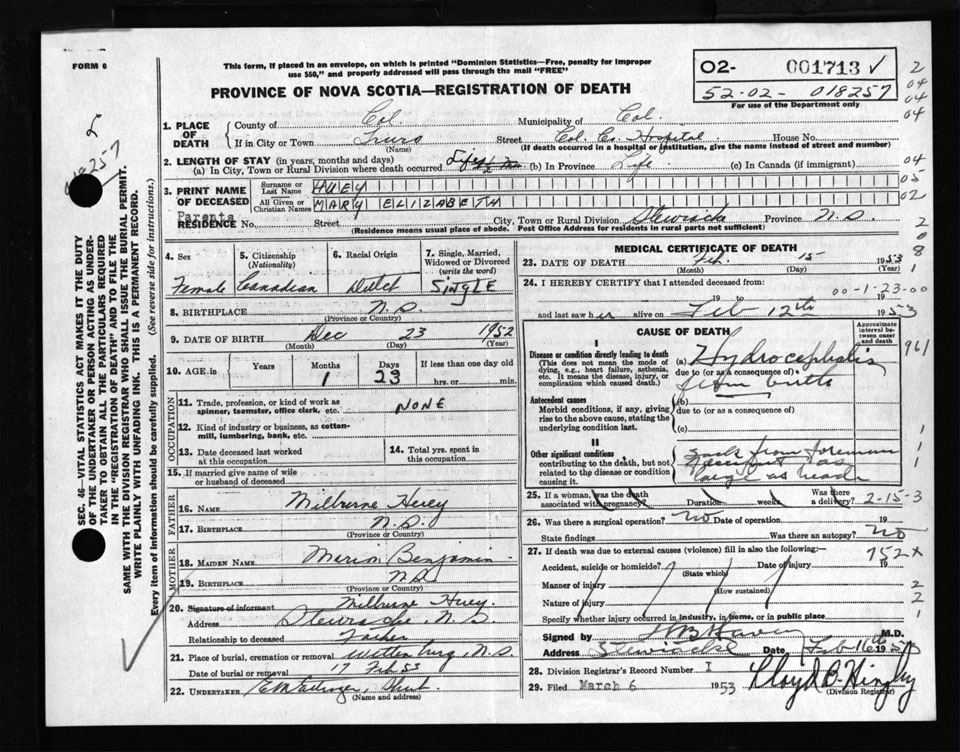 FORM 6
This form, if placed in an envelope, on which is printed "Dominion Statistics—Free, penalty for improper
use $50," and properly addressed will pass through the mail "FREE"
PROVINCE OF NOVA SCOTIA—REGISTRATION OF DEATH
02- 001713 ✓
52-02- 018257
For use of the Department only
2
04
04
04
04
05
02
2
0
8
1
1. PLACE OF DEATH
County of Col. Municipality of Col.
If in City or Town Truro Street Col. Co. Hospital House No.
(Name) (If death occurred in a hospital or institution, give the name instead of street and number)
2. LENGTH OF STAY (in years, months and days)
(a) In City, Town or Rural Division where death occurred (b) In Province Life (c) In Canada (if immigrant)
3. PRINT NAME OF DECEASED
Surname or Last Name HUEY
All Given or Christian Names MARY ELIZABETH
Parents
RESIDENCE No. Street City, Town or Rural Division Stewiacke Province N.S.
(Residence means usual place of abode. Post Office Address for residents in rural parts not sufficient)
4. Sex
Female
5. Citizenship
(Nationality)
Canadian
6. Racial Origin
Dutch
7. Single, Married, Widowed or Divorced
(write the word)
SINGLE
8. BIRTHPLACE N.S.
(Province or Country)
9. DATE OF BIRTH Dec 23 1952
(Month) (Day) (Year)
10. AGE in
Years Months Days If less than one day old
1 23 hrs. or min.
OCCUPATION
11. Trade, profession, or kind of work as spinner, teamster, office clerk, etc. NONE
12. Kind of industry or business, as cotton-mill, lumbering, bank, etc.
13. Date deceased last worked at this occupation
14. Total yrs. spent in this occupation
15. If married give name of wife or husband of deceased
FATHER
16. NAME Milburne Huey
17. BIRTHPLACE N.S.
(Province or Country)
MOTHER
18. MAIDEN NAME Marion Benjamin
19. BIRTHPLACE N.S.
(Province or Country)
20. Signature of informant Milburne Huey.
Address Stewiacke, N.S.
Relationship to deceased Father
21. Place of burial, cremation or removal Wittenburg, N.S.
Date of burial or removal 17 Feb 53
22. UNDERTAKER
(Name and address)
MEDICAL CERTIFICATE OF DEATH
23. DATE OF DEATH Feb. 15 1953
(Month) (Day) (Year)
24. I HEREBY CERTIFY that I attended deceased from:
00-1-23-00
19 to 19
and last saw her alive on Feb 12th 1953
CAUSE OF DEATH
Approximate interval between onset and death
961
I
Disease or condition directly leading to death
(This does not mean the mode of dying, e.g., heart failure, asthenia, etc. It means the disease, injury, or complication which caused death.)
(a) Hydrocephalis
due to (or as a consequence of)
from birth
Antecedent causes
Morbid conditions, if any, giving rise to the above cause, stating the underlying condition last.
(b)
due to (or as a consequence of)
(c)
II
Other significant conditions
contributing to the death, but not related to the disease or condition causing it.
sack from foremum
occiput as
large as head
1
1
1
25. If a woman, was the death associated with pregnancy? Duration weeks Was there a delivery?
2-15-3
26. Was there a surgical operation? No Date of operation 19
State findings Was there an autopsy? No
27. If death was due to external causes (violence) fill in also the following:—
752x
Accident, suicide or homicide? Date of injury 19
(State which)
Manner of injury
(How sustained)
2
Nature of injury
2
Specify whether injury occurred in industry, in home, or in public place
1
Signed by M.D.
Address Stewiacke Date Feb 16th 19
28. Division Registrar's Record Number 1
29. Filed March 6 1953 Lloyd B. Hingley
(Division Registrar)
SEC. 46—VITAL STATISTICS ACT MAKES IT THE DUTY
OF THE UNDERTAKER OR PERSON ACTING AS UNDER-
TAKER TO OBTAIN ALL THE PARTICULARS REQUIRED
IN THE "REGISTRATION OF DEATH" AND TO FILE THE
SAME WITH THE DIVISION REGISTRAR WHO SHALL ISSUE THE BURIAL PERMIT.
WRITE PLAINLY WITH UNFADING INK. THIS IS A PERMANENT RECORD.
Every item of information should be carefully supplied. (See reverse side for instructions.)